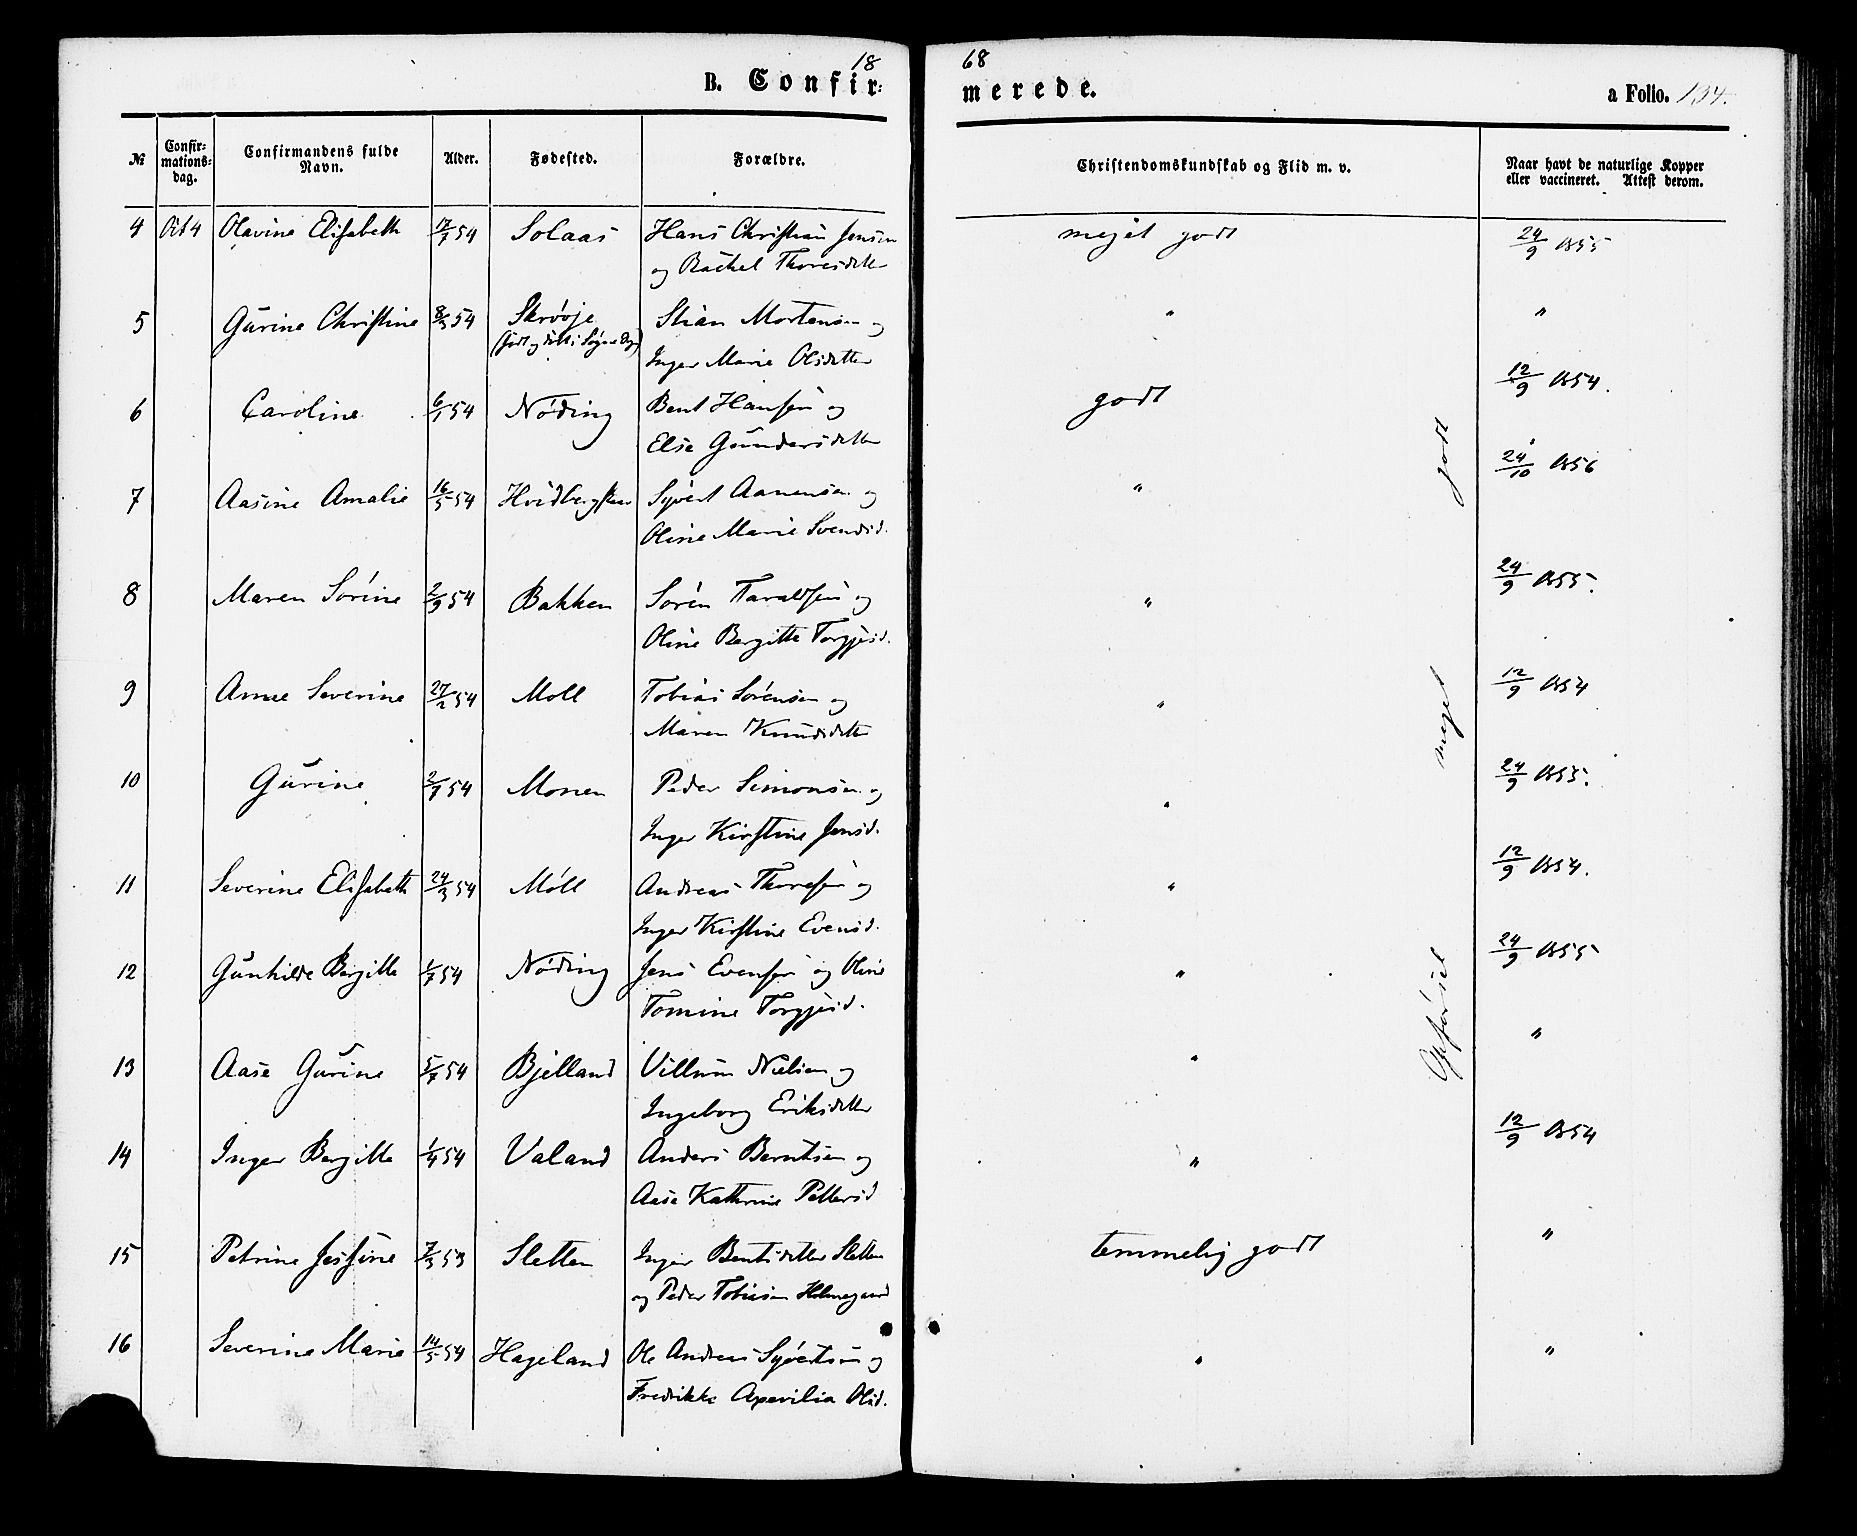 18 68
B. Confir: merede. a Folio. 134.
№ Confir-mations-dag. Confirmandens fulde Navn. Alder. Fødested. Forældre. Christendomskundskab og Flid m. v. Naar havt de naturlige Kopper eller vaccineret. Attest derom.
4 Oct 4 Olavine Elisabeth 12/7 54 Solaas Hans Christian Jensen meget godt 24/9 1855
og Rachel Thoresdatter
5 Gurine Christine 8/3 54 Skrøoje Stian Mortensen og " "
Inger Marie Olsdatter
6 Caroline 6/1 54 Nøding Bent Hansen og godt 12/9 1854.
Else Gundersdatter
7 Aasine Amalie 16/5 54 Hvidbergskar Syvert Aanensen og " 24/10 1856
Oline Marie Svendsd.
8 Maren Sørine 2/9 54 Bakken Søren Taraldsen og " 24/9 1855.
Oline Bergitte Torgjusd.
9 Anne Severine 27/2 54 Moll Tobias Sørensen og " 12/9 1854
Maren Knudsdatter
10 Gurine 2/7 54 Monen Peder Simonsen og " 24/9 1855.
Inger Kirstine Jensd.
11 Severine Elisabeth 24/3 54 Möll Andreas Thoresen og " 12/9 1854.
Inger Kirstine Evensd.
12 Gunhilde Bergitte 1/7 54 Nøding Jens Evensen og Oline " 24/9 1855
Tomine Torgjusd.
13 Aase Gurine 5/7 54 Bjelland Villum Nielsen og " "
Ingeborg Eriksdatter
14 Inger Bergitte 1/4 54 Valand Anders Berntsen og " 12/9 1854
Aase Kathrine Pettersd
15 Petrine Josefine 7/3 53 Sletten Inger Bentsdatter Sletten temmelig godt "
og Peder Tobiasen Holmegaard
16 Severine Marie 14/5 54 Hageland Ole Andreas Syvertsen og " "
Fredrikke Axevilia Olsd.
Opførsel meget godt